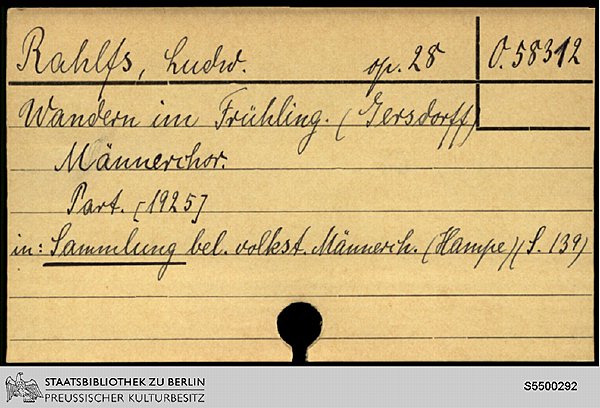 Rahlfs, Ludw. op. 28 O. 58312
Wandern im Frühling. (Gersdorff)
Männerchor.
Part. [1925]
in: Sammlung bel. volkst. Männerch. (Hampe)(S. 139)
STAATSBIBLIOTHEK ZU BERLIN
PREUSSISCHER KULTURBESITZ
S5500292